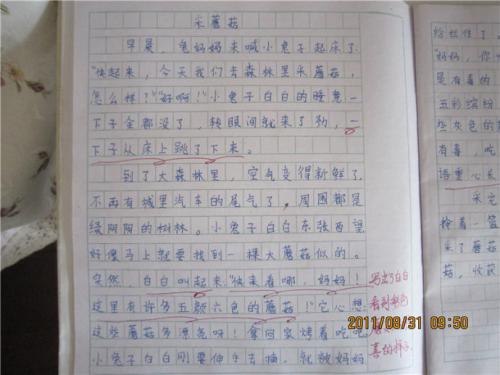 采蘑菇
早晨，兔妈妈来喊小兔子起床了
“快起来，今天我们去森林里采蘑菇，
怎么样？”“好啊！”小兔子白白的睡意一
下子全都没了，转眼间就来了劲，一
下子从床上跳了下来。
到了大森林里，空气变得新鲜了，
不再有城里汽车的尾气了，周围都是
绿阴阴的树林。小兔子白白东张西望
好像马上就要找到一棵大蘑菇似的。
突然，白白叫起来“快来看哪，妈妈！
这里有许多五颜六色的蘑菇！”它心想
这些蘑菇多漂亮呀！拿回家烤着吃吧
小兔子白白刚要伸手去摘，就被妈妈
写出了白白
看到彩色
喜的样子
给拦住了。
“妈妈，你
是有毒的
五彩缤纷
些灰色的
有毒，吃
语重心长
采完
拎着篮
采了蘑菇
菇，收获
2011/08/31 09:50